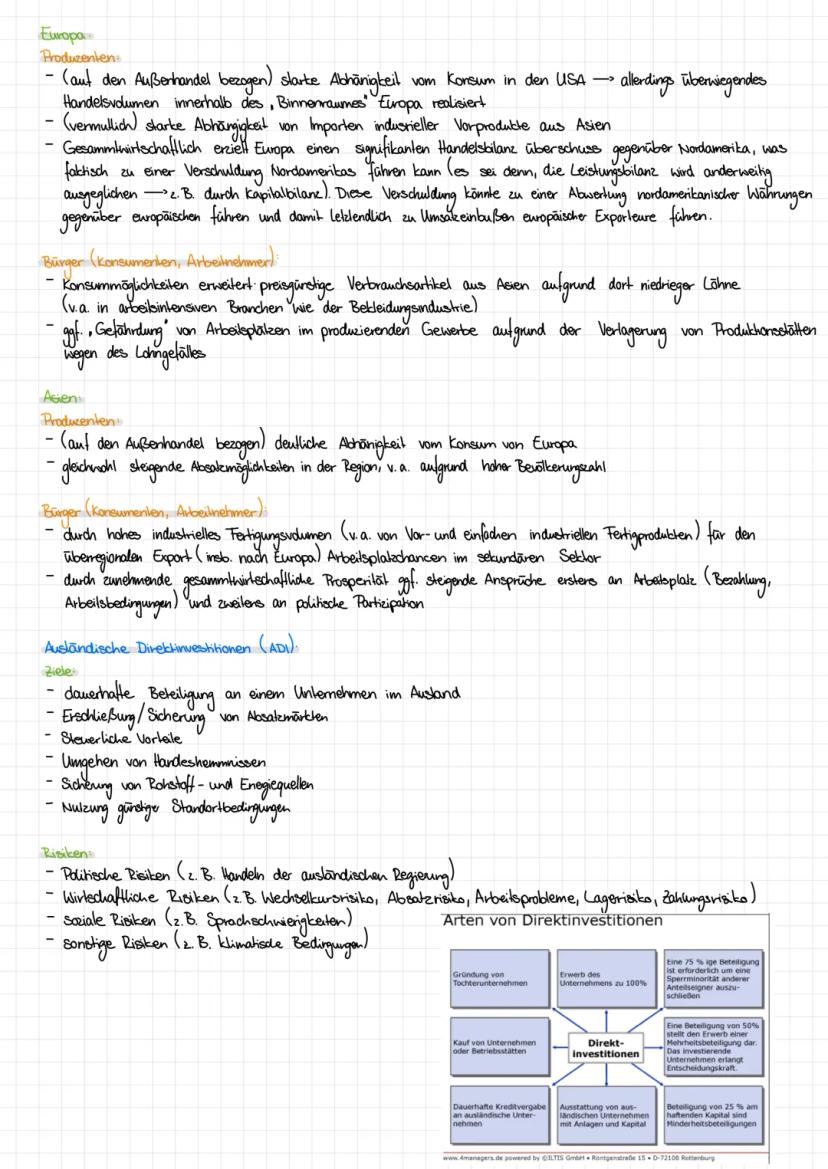 Europa:
Produzenten:
- (auf den Außenhandel bezogen) starke Abhänigkeit vom Konsum in den USA → allerdings überwiegendes
Handelsvolumen innerhalb des „Binnenraumes" Europa realisiert
- (vermutlich) starke Abhängigkeit von Importen industrieller Vorprodukte aus Asien
- Gesammtwirtschaftlich erzielt Europa einen signifikanten Handelsbilanz überschuss gegenüber Nordamerika, was
faktisch zu einer Verschuldung Nordamerikas führen kann (es sei denn, die Leistungsbilanz wird anderweitig
ausgeglichen → z.B. durch Kapitalbilanz). Diese Verschuldung könnte zu einer Abwertung nordamerikanischer Währungen
gegenüber europäischen führen und damit letztendlich zu Umsatzeinbußen europäischer Exporteure führen.
Bürger (Konsumenten, Arbeitnehmer):
- Konsummöglichkeiten erweitert: preisgünstige Verbrauchsartikel aus Asien aufgrund dort niedrieger Löhne
(v.a. in arbeitsintensiven Branchen wie der Bekleidungsindustrie)
- ggf. „Gefährdung" von Arbeitsplätzen im produzierenden Gewerbe aufgrund der Verlagerung von Produktionsstätten
wegen des Lohngefälles
Asien:
Produzenten:
- (auf den Außenhandel bezogen) deutliche Abhänigkeit vom Konsum von Europa
- gleichwohl steigende Absatzmöglichkeiten in der Region, v.a. aufgrund hoher Bevölkerungszahl
Bürger (Konsumenten, Arbeitnehmer):
- durch hohes industrielles Fertigungsvolumen (v.a. von Vor- und einfachen industriellen Fertigprodukten) für den
überregionalen Export (insb. nach Europa) Arbeitsplatzchancen im sekundären Sektor
- durch zunehmende gesammtwirtschaftliche Prosperität ggf. steigende Ansprüche erstens an Arbeitsplatz (Bezahlung,
Arbeitsbedingungen) und zweitens an politische Partizipation
Ausländische Direktinvestitionen (ADI):
Ziele:
- dauerhafte Beteiligung an einem Unternehmen im Ausland
- Erschließung/Sicherung von Absatzmärkten
- Steuerliche Vorteile
- Umgehen von Handeshemmnissen
- Sicherung von Rohstoff- und Enegiequellen
- Nutzung günstige Standortbedingungen
Risiken:
- Politische Risiken (z.B. Handeln der ausländischen Regierung)
- Wirtschaftliche Risiken (z.B. Wechselkursrisiko, Absatzrisiko, Arbeitsprobleme, Lagerrisiko, Zahlungsrisiko)
- soziale Risiken (z.B. Sprachschwierigkeiten)
- sonstige Risiken (z.B. klimatische Bedingungen)
Arten von Direktinvestitionen
Gründung von
Tochterunternehmen
Erwerb des
Unternehmens zu 100%
Eine 75 % ige Beteiligung
ist erforderlich um eine
Sperrminorität anderer
Anteilseigner auszu-
schließen
Kauf von Unternehmen
oder Betriebsstätten
Direkt-
investitionen
Eine Beteiligung von 50%
stellt den Erwerb einer
Mehrheitsbeteiligung dar.
Das investierende
Unternehmen erlangt
Entscheidungskraft.
Dauerhafte Kreditvergabe
an ausländische Unter-
nehmen
Ausstattung von aus-
ländischen Unternehmen
mit Anlagen und Kapital
Beteiligung von 25 % am
haftenden Kapital sind
Minderheitsbeteiligungen
www.4managers.de powered by ©ILTIS GmbH • Röntgenstraße 15 • D-72108 Rottenburg